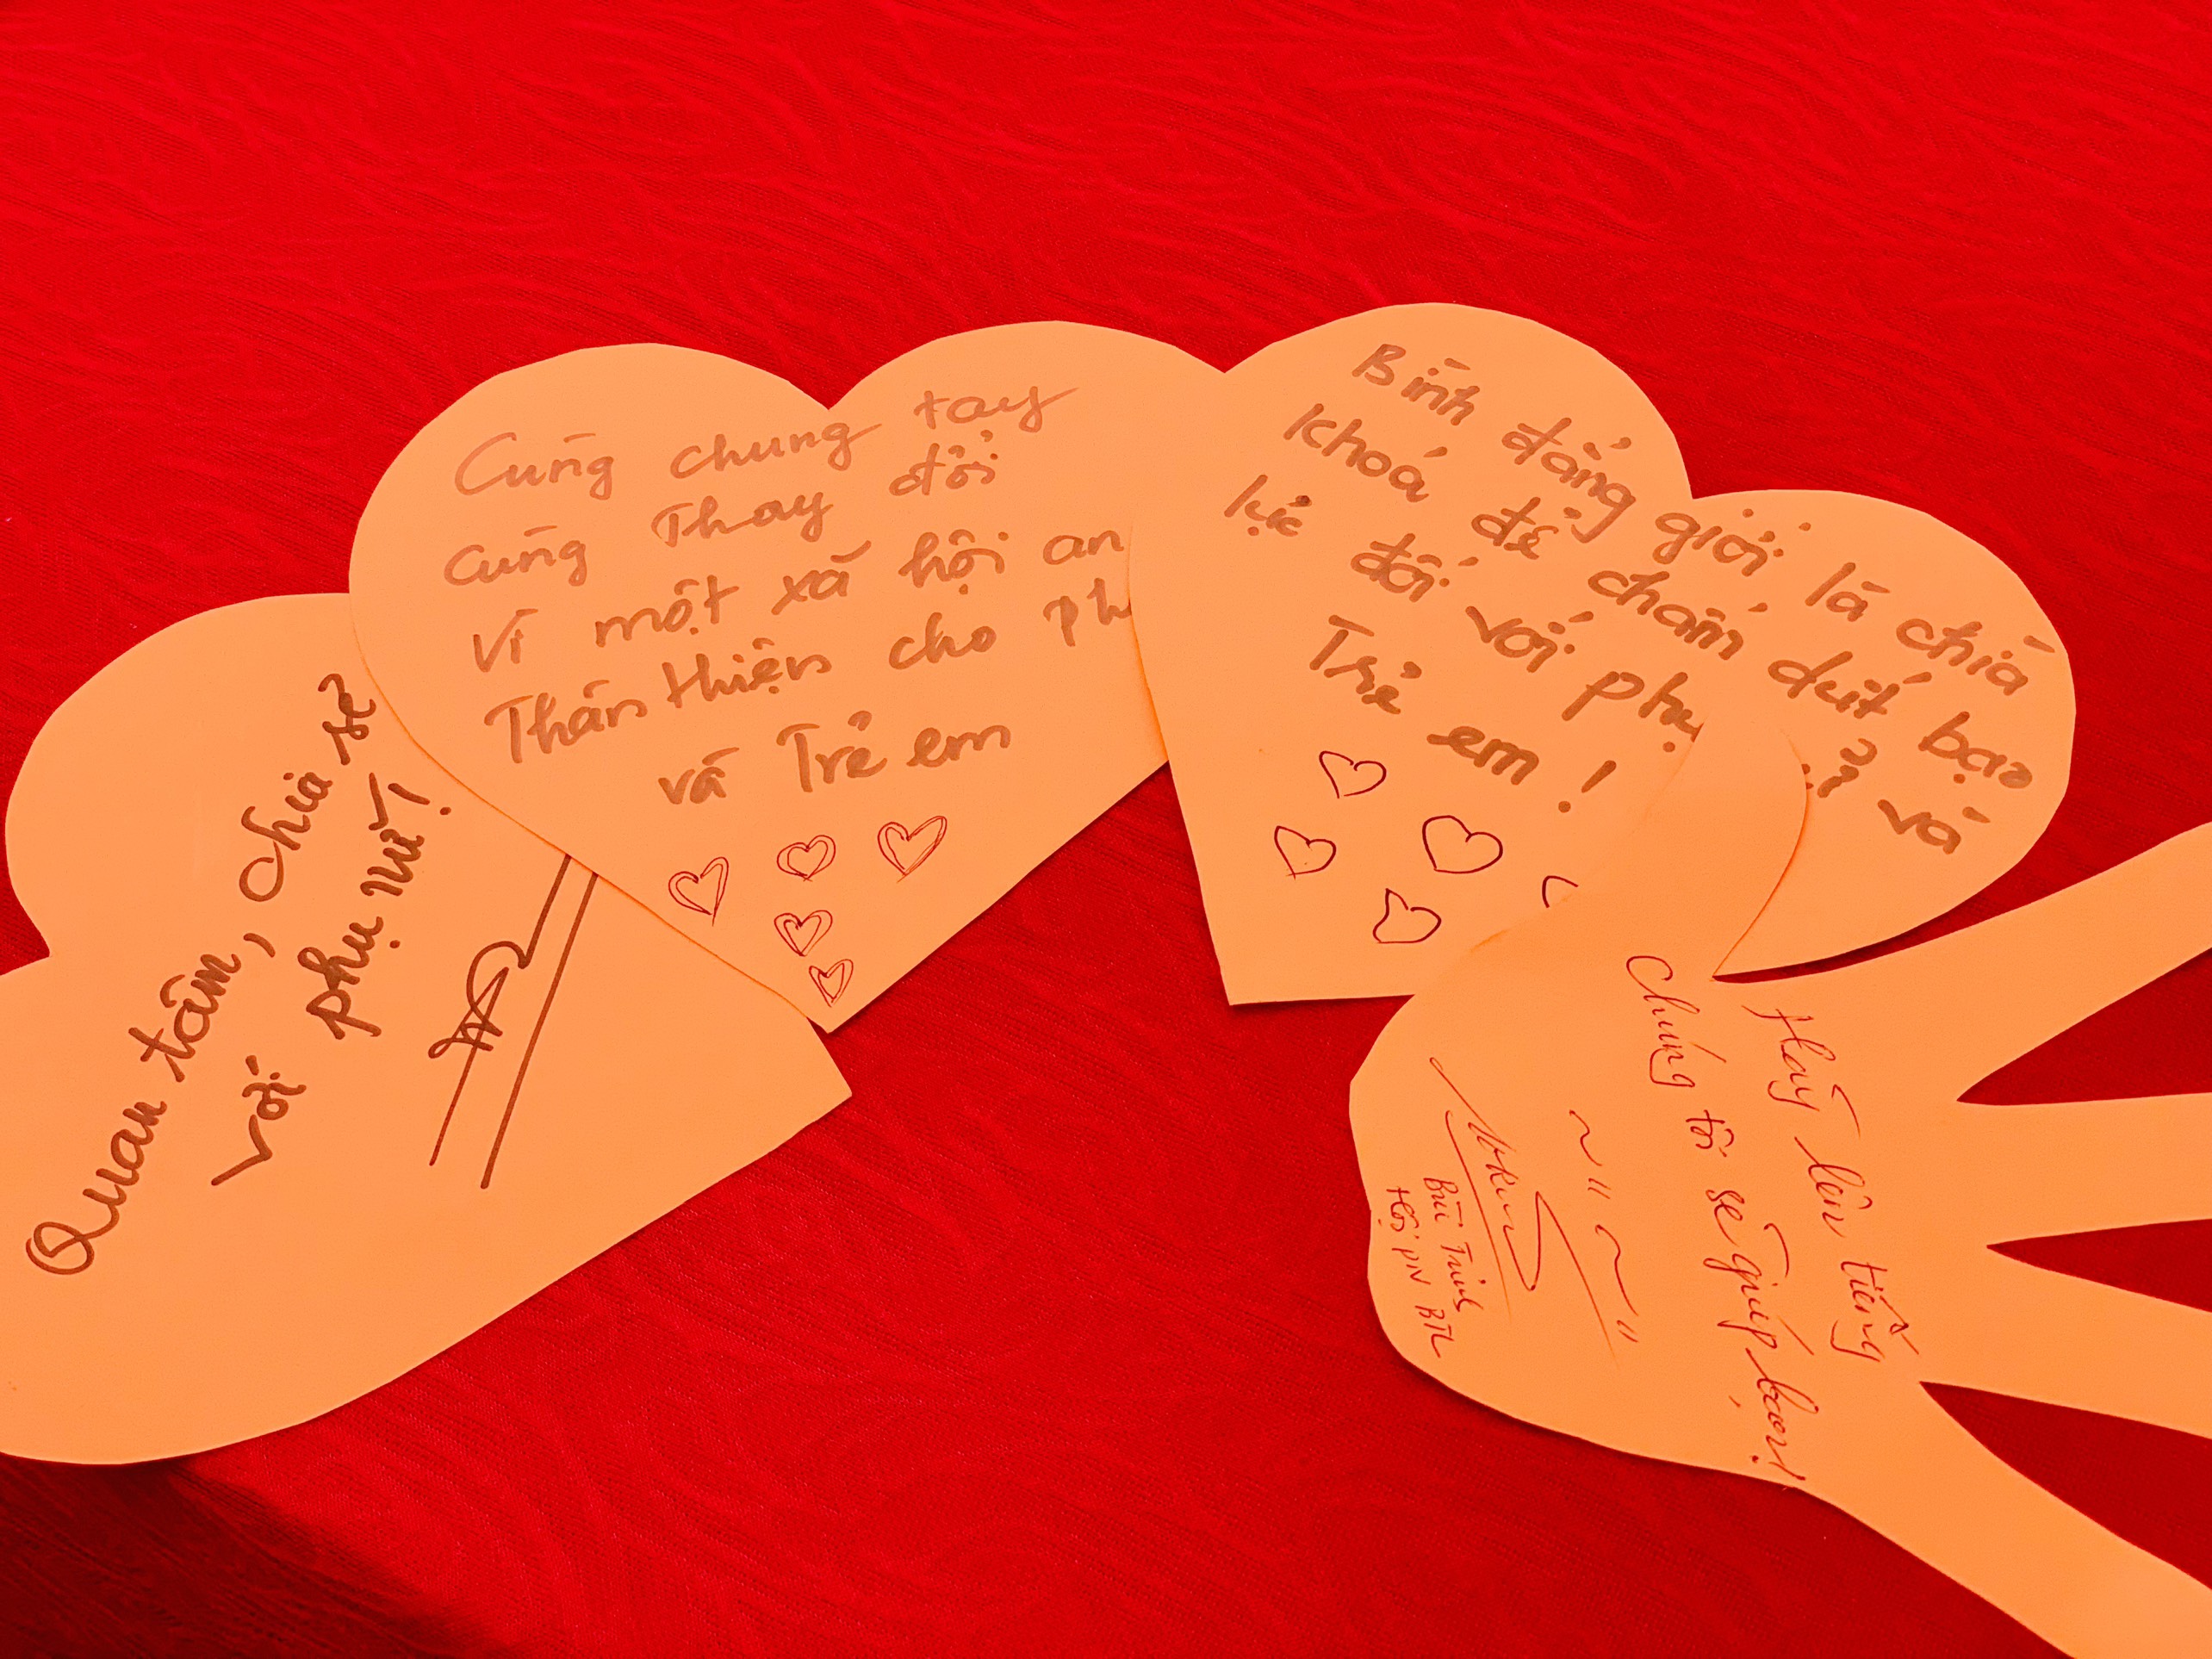 Quan tâm, chia sẻ
với phụ nữ!
Cùng chung tay
cùng Thay đổi
Vì một xã hội an
Thân thiện cho ph
và Trẻ em
Bình đẳng giới là chìa
khoá để chấm dứt bạo
lực đối với phụ và
Trẻ em!
Hãy lên tiếng
Chúng tôi sẽ giúp bạn!
Bùi Trinh
Hội PN BTL